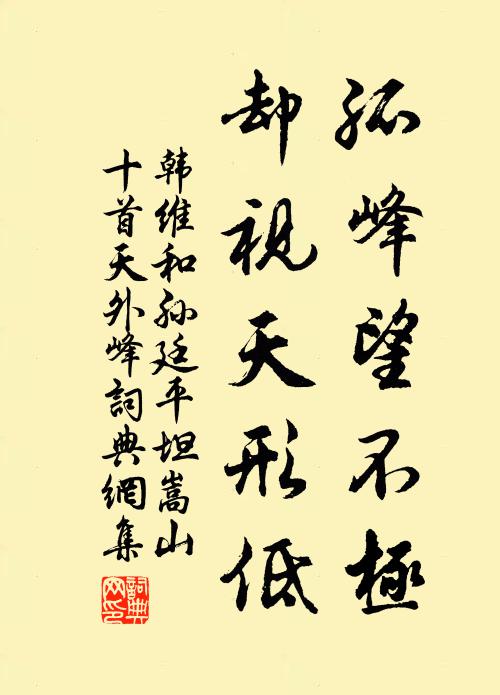 孤峰望不極
却視天形低
韩維和孫廷平坦嵩山
十首天外峰詞典網集
詞典網印